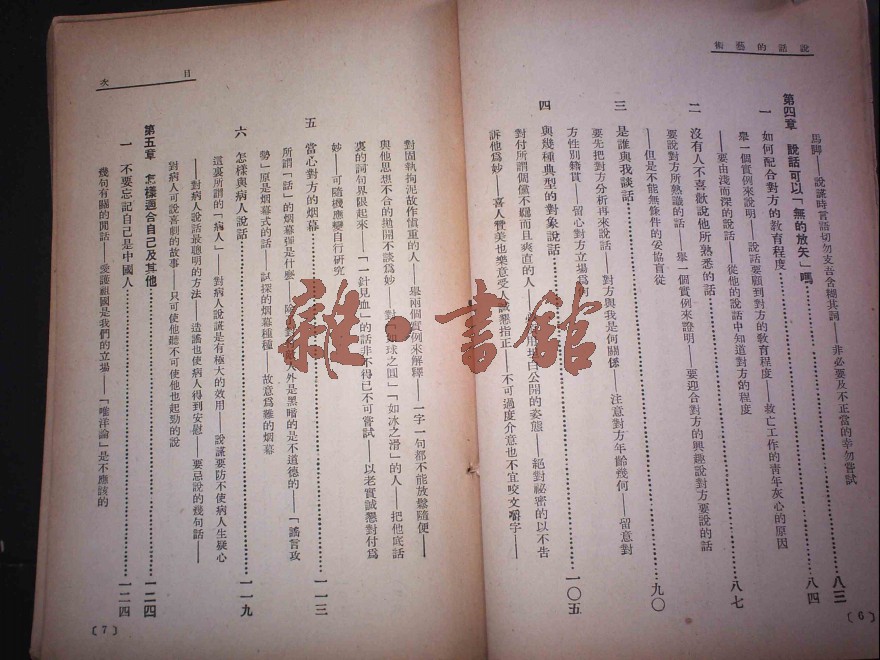 說話的藝術
馬脚——說謊時言語切勿支吾含糊其詞——非必要及不正當的幸勿嘗試……八三
第四章 說話可以「無的放矢」嗎……八四
一 如何配合對方的教育程度……
舉一個實例來說明——說話要顧到對方的教育程度——救亡工作的青年灰心的原因
——要由淺而深的說話——從他的說話中知道對方的程度
二 沒有人不喜歡說他所熟悉的話……八七
要說對方所熟識的話——舉一個實例來證明——要迎合對方的興趣說對方要說的話
——但是不能無條件的妥協盲從
三 是誰與我談話……九〇
要先把對方分析再來說話——對方與我是何關係——注意對方年齡幾何——留意對
方性別籍貫——留心對方立場爲
四 與幾種典型的對象說話……一〇五
對付所謂倜儻不羈而且爽直的人——坦白公開的姿態——絕對祕密的以不告
訴他爲妙——喜人贊美也樂意受人誠懇指正——不可過度介意也不宜咬文嚼字——
(6)
目次
對固執拘泥故作愼重的人——舉兩個實例來解釋——一字一句都不能放鬆隨便——
與他思想不合的拋開不談爲妙——對「如球之圓」「如冰之滑」的人——把他底話
裏的詞句界限起來——「一針見血」的話非不得已不可嘗試——以老實誠懇對付爲
妙——可隨機應變自行研究
五 當心對方的烟幕……一一三
所謂「話」的烟幕彈是什麼——除外是黑暗的是不道德的——「謠言攻
勢」原是烟幕式的話——試探的烟幕種種——故意爲難的烟幕
六 怎樣與病人說話……一一九
這裏所謂的「病人」——對病人說謊是有極大的效用——說謊要防不使病人生疑心
——對病人說話最聰明的方法——造謠也使病人得到安慰——要忌說的幾句話——
對病人可說喜劇的故事——只可使他聽不可使他也起勁的說
第五章 怎樣適合自己及其他……一二四
一 不要忘記自己是中國人……一二四
幾句有關的閒話——愛護祖國是我們的立場——「唯洋論」是不應該的
(7)
雜·書館